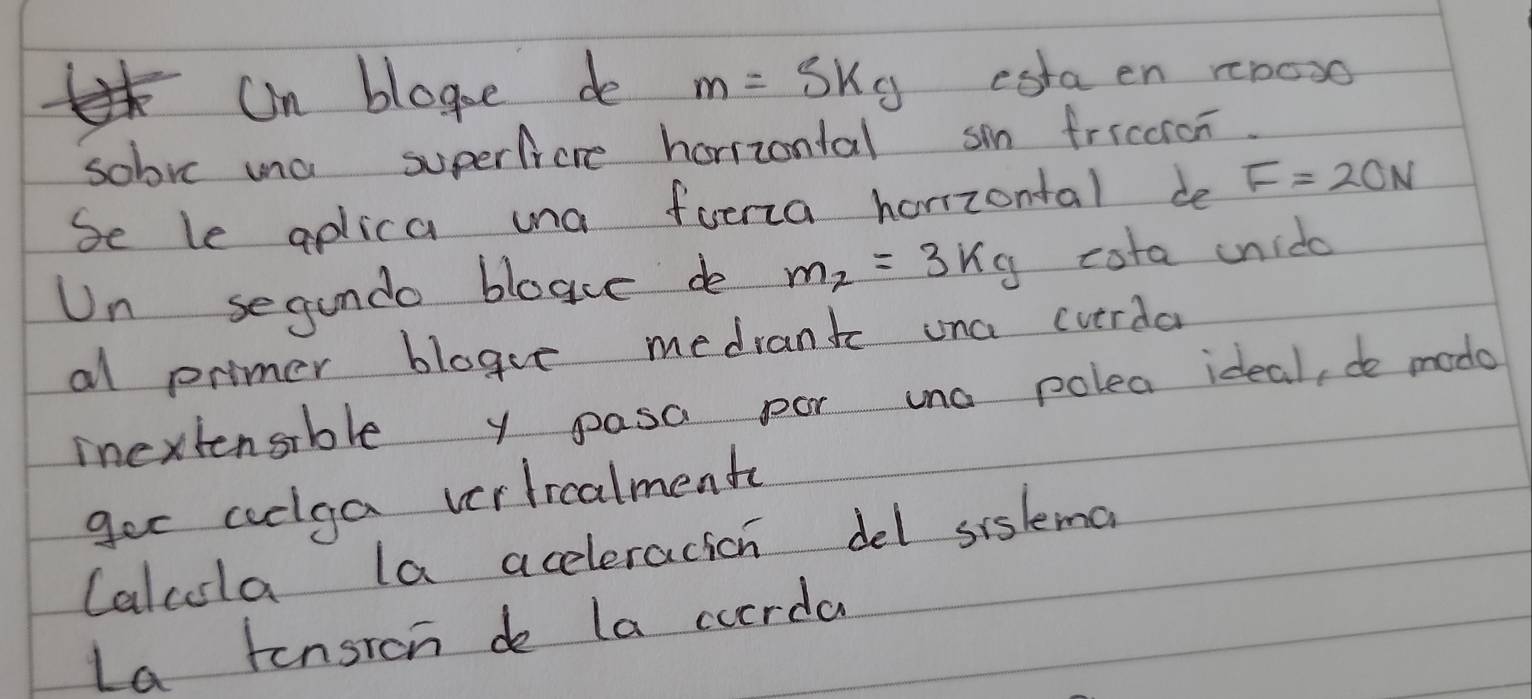 Un bloque de m = 5Kg esta en reposo
sobre una superficie horizontal sin fricción.
Se le aplica una fuerza horizontal de F = 20N
Un segundo bloque de m₂ = 3Kg esta unido
al primer bloque mediante una cuerda
inextensible y pasa por una polea ideal, de modo
que cuelga verticalmente
Calcula la aceleración del sistema
La tensión de la cuerda